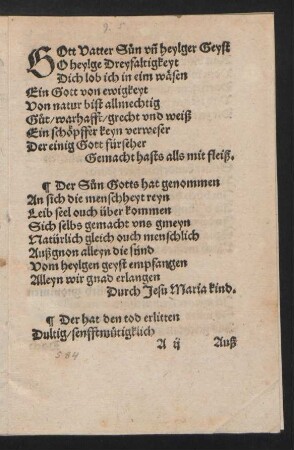 9. 5.
GOtt Vatter Sün vñ heylger Geyst
O heylge Dreyfaltigkeyt
Dich lob ich in eim wäsen
Ein Gott von ewigkeyt
Von natur bist allmechtig
Güt/warhafft/grecht vnd weiß
Ein schöpffer keyn verweser
Der einig Gott fürseher
Gemacht hasts alls mit fleiß.
¶ Der Sün Gotts hat genommen
An sich die menschheyt reyn
Leib seel ouch über kommen
Sich selbs gemacht vns gmeyn
Natürlich gleich ouch menschlich
Außgnon alleyn die sünd
Vom heylgen geyst empfangen
Alleyn wir gnad erlangen
Durch Jesü Maria kind.
¶ Der hat den tod erlitten
Dultig/senfftmütigklich
A ij Auß
584